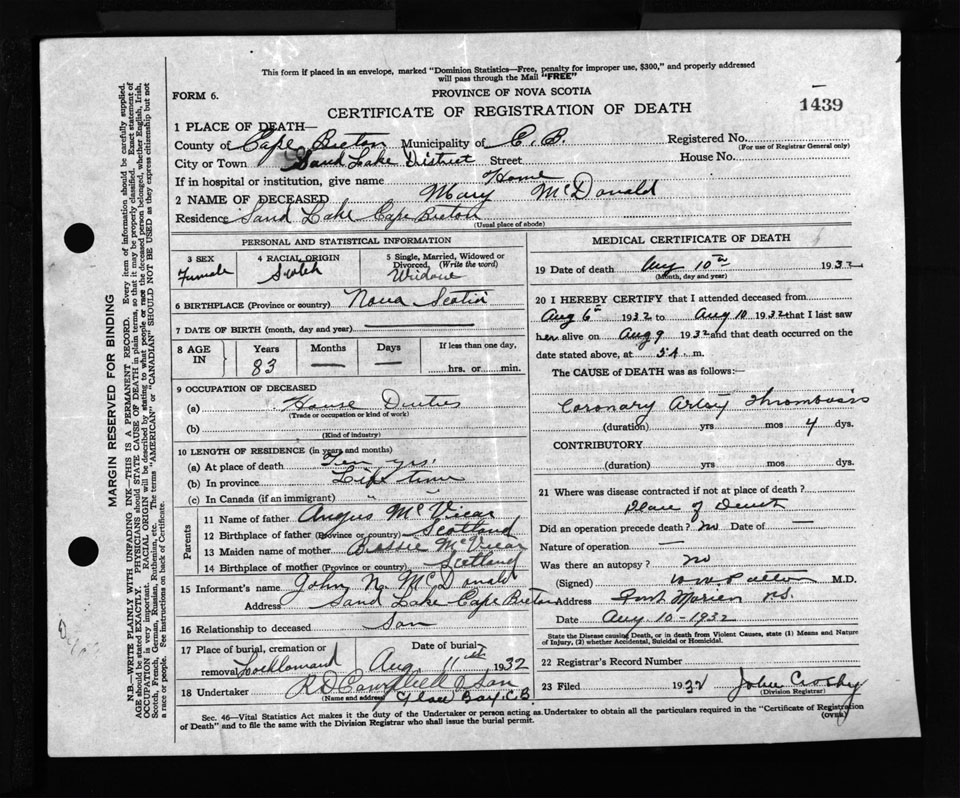 This form if placed in an envelope, marked "Dominion Statistics—Free, penalty for improper use, $300," and properly addressed
will pass through the Mail "FREE"
FORM 6.
PROVINCE OF NOVA SCOTIA
CERTIFICATE OF REGISTRATION OF DEATH
1439
1 PLACE OF DEATH—
County of Cape Breton Municipality of C. B. Registered No.
(For use of Registrar General only)
City or Town Sand Lake District Street House No.
If in hospital or institution, give name Home
2 NAME OF DECEASED Mary McDonald
Residence Sand Lake Cape Breton
(Usual place of abode)
PERSONAL AND STATISTICAL INFORMATION
3 SEX Female
4 RACIAL ORIGIN Scotch
5 Single, Married, Widowed or Divorced, (Write the word) Widow
6 BIRTHPLACE (Province or country) Nova Scotia
7 DATE OF BIRTH (month, day and year) —
8 AGE IN Years Months Days If less than one day,
83 — — hrs. or min.
9 OCCUPATION OF DECEASED
(a) House Duties
(Trade or occupation or kind of work)
(b)
(Kind of industry)
10 LENGTH OF RESIDENCE (in years and months)
(a) At place of death Ten yrs.
(b) In province Life time
(c) In Canada (if an immigrant) " "
Parents
11 Name of father Angus McVicar
12 Birthplace of father (Province or country) Scotland
13 Maiden name of mother McVicar
14 Birthplace of mother (Province or country) Scotland
15 Informant's name John N. McDonald
Address Sand Lake Cape Breton
16 Relationship to deceased Son
17 Place of burial, cremation or removal Lochlomand Date of burial Aug. 11th 1932
18 Undertaker R D Campbell & Son
(Name and address) Glace Bay C.B.
MEDICAL CERTIFICATE OF DEATH
19 Date of death Aug 10th 1932
(Month, day and year)
20 I HEREBY CERTIFY that I attended deceased from
Aug 6th 1932 to Aug 10 1932 that I last saw
her alive on Aug 9 1932 and that death occurred on the
date stated above, at 5 A. m.
The CAUSE of DEATH was as follows:—
Coronary Artery Thrombosis
(duration) yrs mos 4 dys.
CONTRIBUTORY
(duration) yrs mos dys.
21 Where was disease contracted if not at place of death?
Place of Death
Did an operation precede death? no Date of —
Nature of operation —
Was there an autopsy? no
(Signed) Patton M.D.
Address Port Morien N.S.
Date Aug 10-1932
State the Disease causing Death, or in death from Violent Causes, state (1) Means and Nature of Injury, (2) whether Accidental, Suicidal or Homicidal.
22 Registrar's Record Number
23 Filed 1932 John Crosby
(Division Registrar)
Sec. 46—Vital Statistics Act makes it the duty of the Undertaker or person acting as Undertaker to obtain all the particulars required in the "Certificate of Registration
of Death" and to file the same with the Division Registrar who shall issue the burial permit.
(OVER)
MARGIN RESERVED FOR BINDING
N.B.—WRITE PLAINLY WITH UNFADING INK—THIS IS A PERMANENT RECORD. Every item of information should be carefully supplied.
AGE should be stated EXACTLY. PHYSICIANS should STATE CAUSE OF DEATH in plain terms, so that it may be properly classified. Exact statement of
OCCUPATION is very important. RACIAL ORIGIN will be described by stating to what people or race the deceased person belonged, whether English, Irish,
Scotch, French, German, Russian, Ruthenian, etc. The terms "AMERICAN" or "CANADIAN" SHOULD NOT BE USED as they express citizenship but not
a race or people. See instructions on back of Certificate.